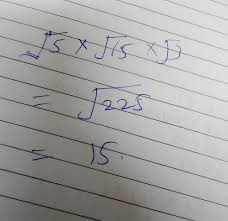 √5 × √15 × √3
= √225
= 15.